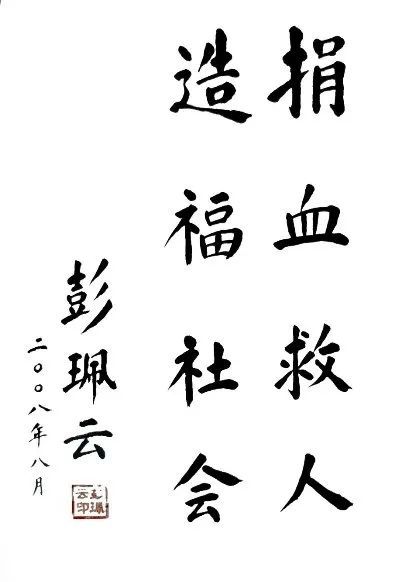 捐血救人
造福社会
彭珮云
二〇〇八年八月
彭珮云印